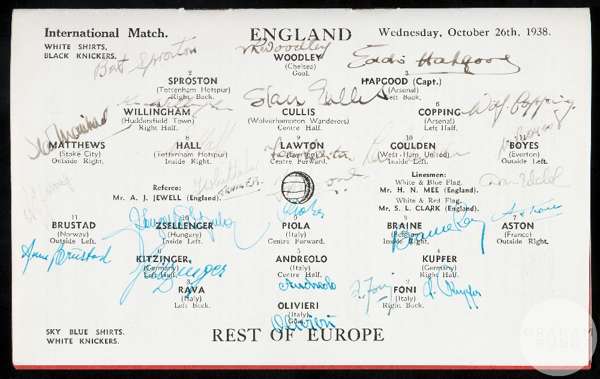 International Match.
ENGLAND
Wednesday, October 26th, 1938.
WHITE SHIRTS,
BLACK KNICKERS.
Bert Sproston
V R Woodley
Eddie Hapgood
WOODLEY
(Chelsea)
Goal.
2
SPROSTON
(Tottenham Hotspur)
Right Back.
3
HAPGOOD (Capt.)
(Arsenal)
Left Back.
Stan Cullis
Wilf Copping
WILLINGHAM
(Huddersfield Town)
Right Half.
5
CULLIS
(Wolverhampton Wanderers)
Centre Half.
6
COPPING
(Arsenal)
Left Half.
7
MATTHEWS
(Stoke City)
Outside Right.
8
HALL
(Tottenham Hotspur)
Inside Right.
9
LAWTON
(Everton)
Centre Forward.
10
GOULDEN
(West Ham United)
Inside Left.
BOYES
(Everton)
Outside Left.
Referee:
Mr. A. J. JEWELL (England).
Linesmen:
White & Blue Flag.
Mr. H. N. MEE (England).
White & Red Flag.
Mr. S. L. CLARK (England).
11
BRUSTAD
(Norway)
Outside Left.
10
ZSELLENGER
(Hungary)
Inside Left.
PIOLA
(Italy)
Centre Forward.
8
BRAINE
(Belgium)
Inside Right.
7
ASTON
(France)
Outside Right.
Arne Brustad
6
KITZINGER,
(Germany)
Left Half.
5
ANDREOLO
(Italy)
Centre Half.
4
KUPFER
(Germany)
Right Half.
Andreolo
A. Foni
A. Kupfer
RAVA
(Italy)
Left Back.
OLIVIERI
(Italy)
Goal.
2
FONI
(Italy)
Right Back.
Olivieri
SKY BLUE SHIRTS.
WHITE KNICKERS.
REST OF EUROPE